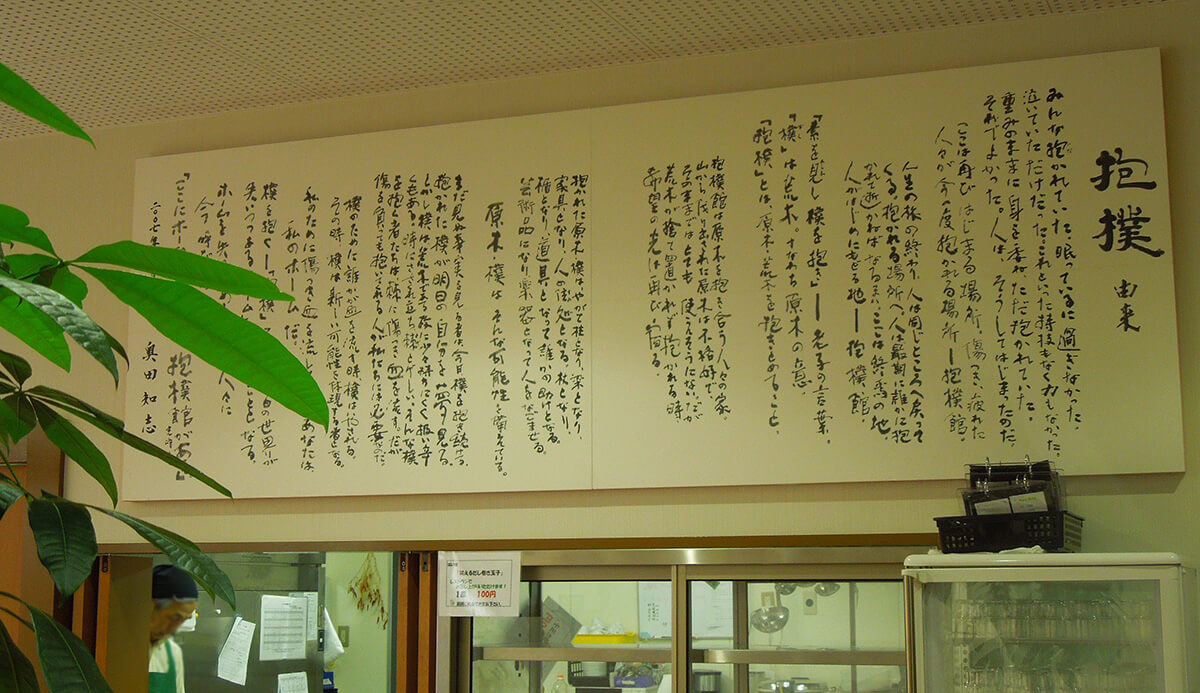 抱樸 由来
みんな抱かれていた。眠っているに過ぎなかった。
泣いていただけだった。これといった特技もなく力もなかった。
重みのままに身を委ね、ただ抱かれていた。
それでよかった。人は、そうしてはじまったのだ。
ここは再びはじまる場所。傷つき、疲れた
人々が今一度抱かれる場所―抱樸館。
人生の旅の終わり。人は同じところへ戻って
くる。抱かれる場所へ。人は最期に誰かに抱
かれて逝かねばなるまい。ここは終焉の地。
人がはじめにもどる地―抱樸館。
「素を見し樸を抱き」―老子の言葉。
「樸」は荒木。すなわち原木の意。
「抱樸」とは、原木・荒木を抱きとめること。
抱樸館は原木を抱き合う人々の家。
山から伐り出された原木は不格好で、
そのままではとても使えそうにない。だが
荒木が捨て置かれず抱かれる時、
希望の光は再び宿る。
抱かれた原木・樸はやがて柱となり、梁となり、
家具となり、人の住処となる。杖となり、
楯となり、道具となって誰かの助けとなる。
芸術品になり、楽器となって人を和ませる。
原木・樸はそんな可能性を備えている。
まだ見ぬ事実を見る者は、今日、樸を抱き続ける。
抱かれた樸が明日の自分を夢見る。
しかし樸は荒木である故に少々持ちにくく扱い辛
くもある。時にはささくれ立ち棘とげしい。そんな樸
を抱く者たちは棘に傷つき血を流す。だが
傷を負っても抱いてくれる人が私たちには必要なのだ。
樸のために誰かが血を流す時、樸は癒される。
その時、樸は新しい可能性を体現する者となる。
私のために傷つき血を流し
あなたは
―私のホームだ。
樸を抱く―「抱樸」
の世界が
失いつつある
となる。
ホームを失
人々に
今、呼
「ここにホーム
抱樸館がある」
二〇〇七年
奥田知志
レストランで
1皿 100円